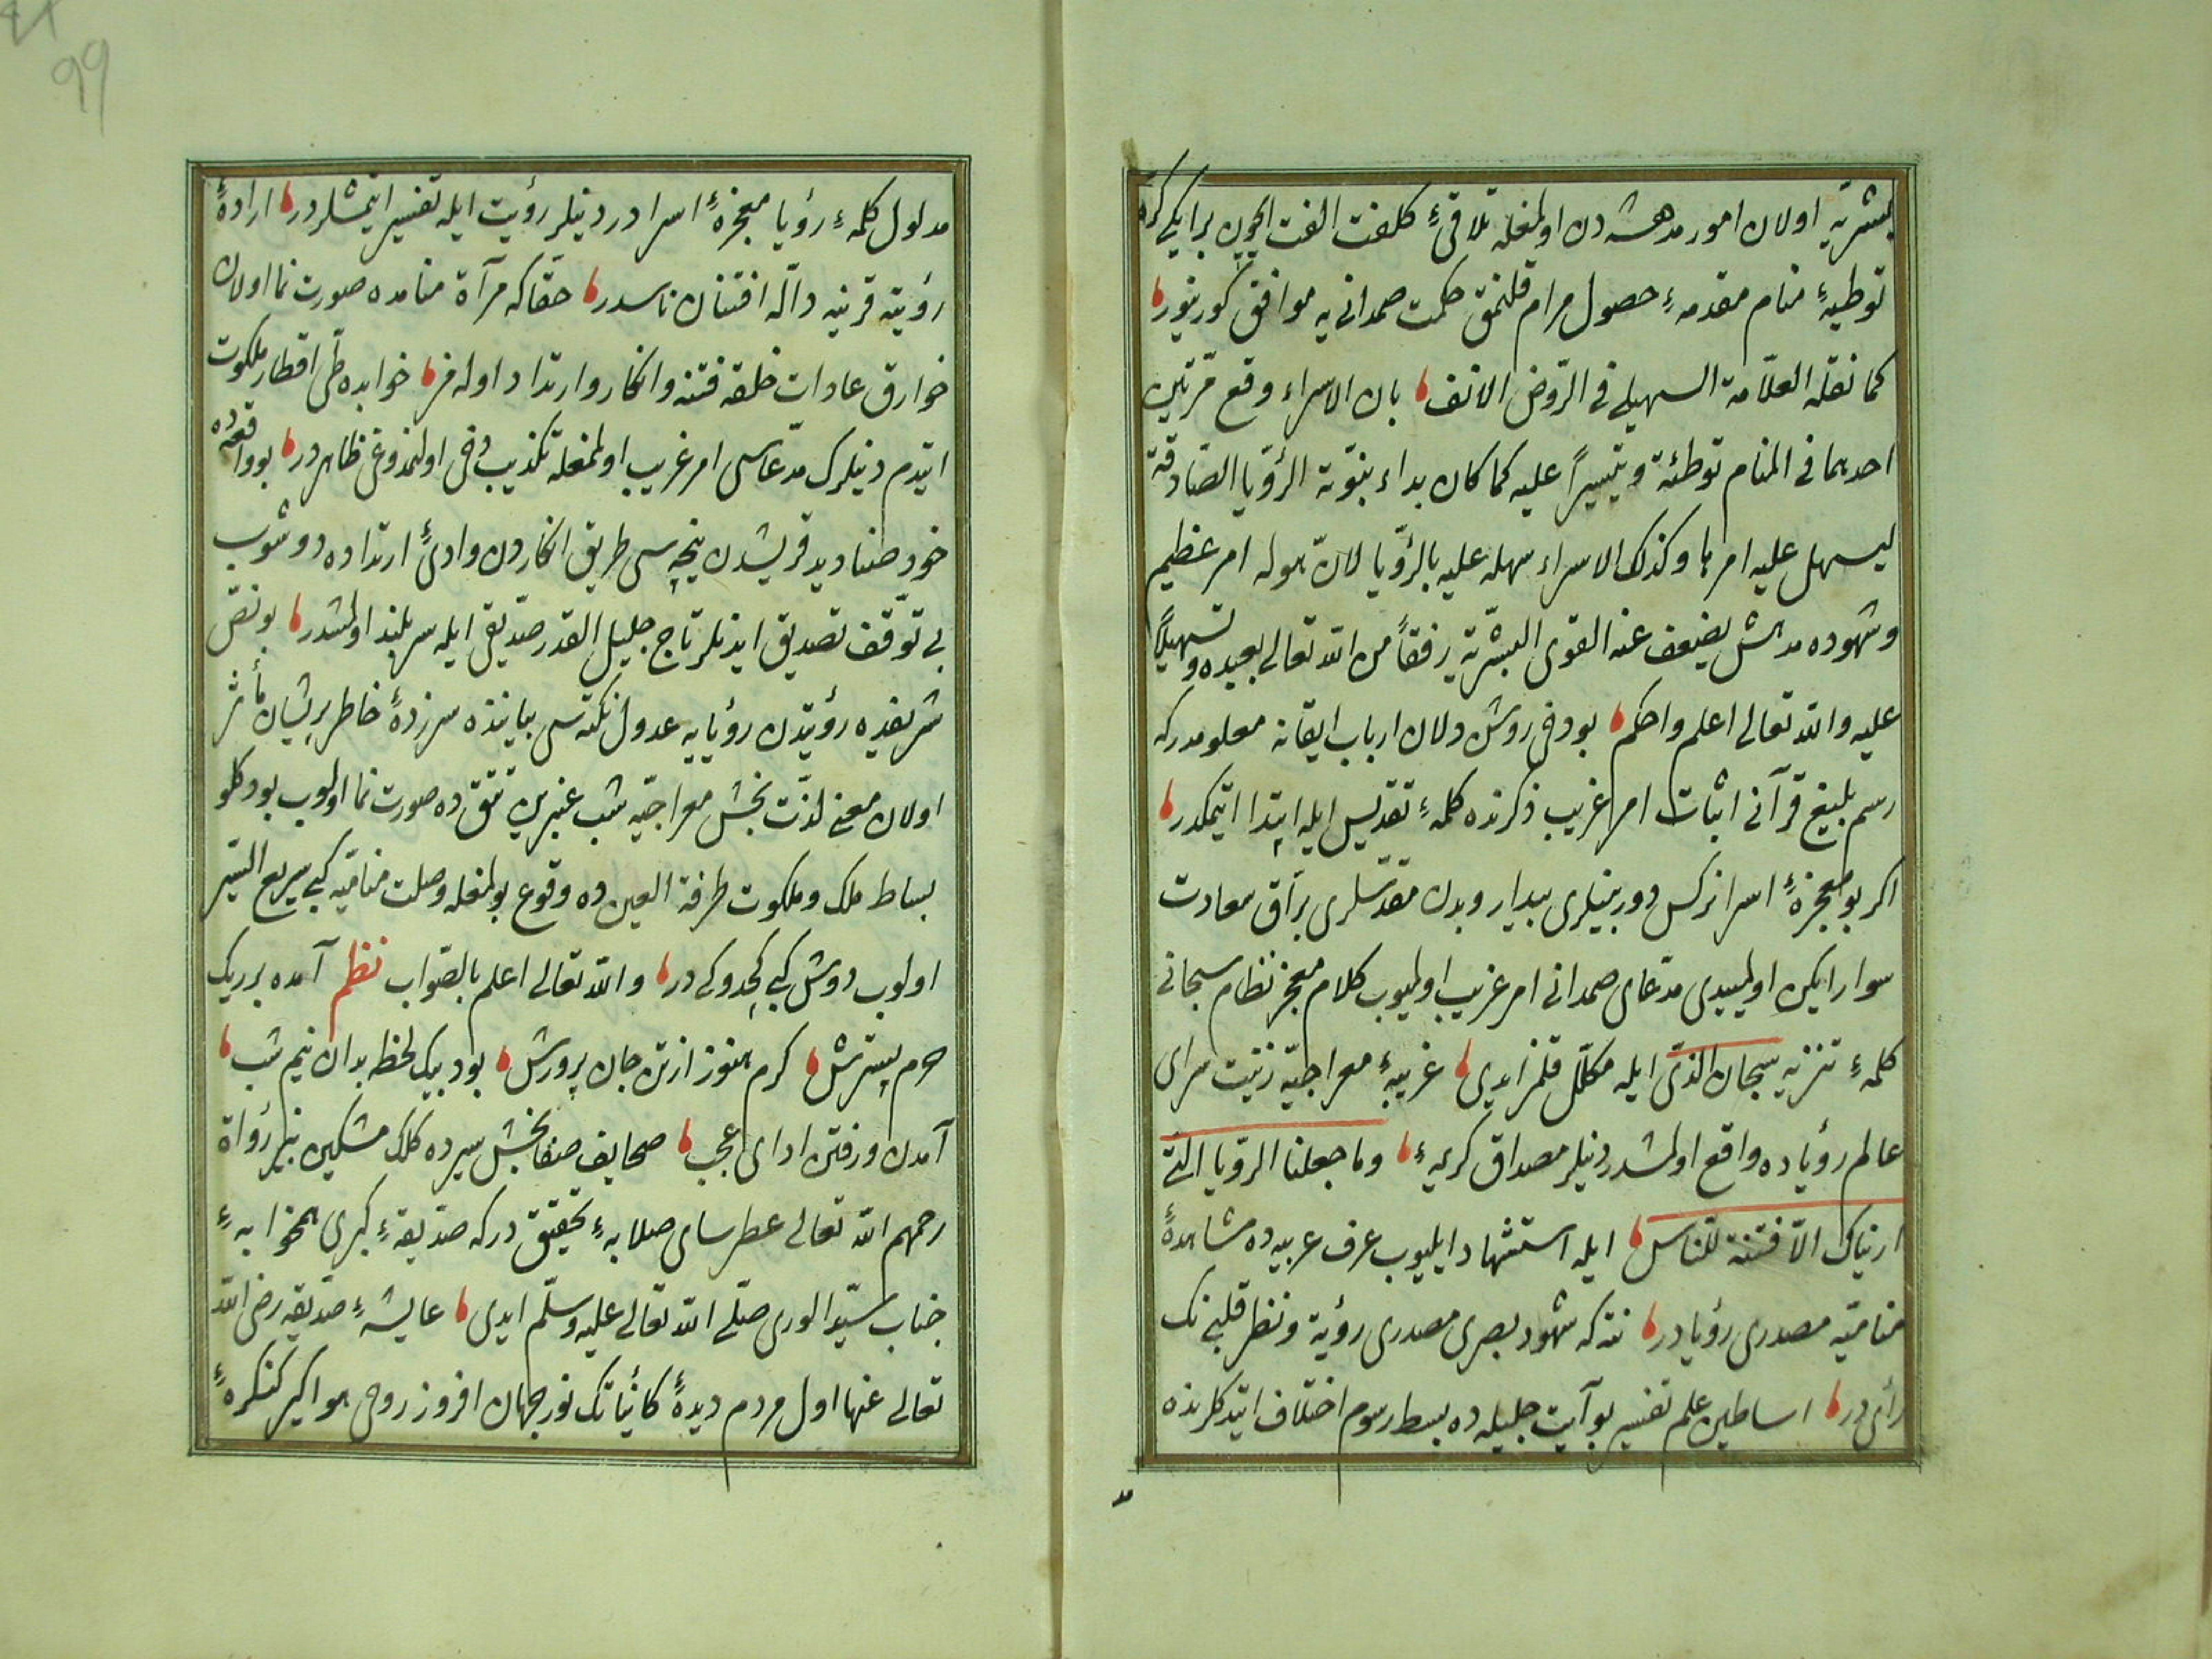 بشریه اولان امور مدهشه‌دن اولمغله تلاقئ کلفت الفت ایچون بر ایکی کره
توطیهٔ منام مقدمهٔ حصول مرام قلنمق حکمت صمدانی‌یه موافق کورینور
کما نقله العلّامة السهیلی فی الرّوض الانف بان الاسراء وقع مرّتین
احدیهما فی المنام توطئة و تیسیراً علیه کما کان بداء نبوّته الرؤیا الصّادقة
لیسهل علیه امرها وکذلک الاسراء سهله علیه بالرؤیا لانّ هوله امر عظیم
وشهوده مدهش یضعف عنه القوی البشریّة رفقاً من الله تعالی بعبده وتسهیلاً
علیه والله تعالی اعلم واحکم بو دخی روشن دلان ارباب ایقانه معلومدرکه
رسم بلیغ قرآنی اثبات امر غریب ذکرنده کلمهٔ تقدیس ایله ابتدا ایتمکدر
اکر بو معجزهٔ اسرا نرکس دوربینلری بیدار وبدن مقدّسلری برّاق سعادت
سوار ایکن اولمیدی مدّعای صمدانی امر غریب اولمیوب کلام معجز نظام سبحانی
کلمهٔ تنزیه سبحان الذی ایله مکلّل قلنمز ایدی غریبهٔ معراجیّه زینت سرای
عالم رؤیاده واقع اولمشدر دینلر مصداق کریمهٔ وما جعلنا الرّؤیا التی
اریناک الّا فتنة للناس ایله استشهاد ایلیوب عرف عربیده مشاهدهٔ
منامیّه مصدری رؤیادر نته‌که شهود بصری مصدری رؤیة ونظر قلبینک
رأی در اساطین علم تفسیر بو آیت جلیله‌ده بسط رسوم اختلاف ایتدکلرنده
مد
مدلول کلمهٔ رؤیا معجزهٔ اسرادر دینلر رؤیت ایله تفسیر ایتمشلردر ارادهٔ
رؤیته قرینه دالّه افتنان ناسدر حقّاکه مرآة منامده صورت نما اولان
خوارق عادات خلقه فتنه وانکار وارتداد اولمز خوابده طیّ اقطار ملکوت
ایتدم دینلرک مدّعاسی امر غریب اولمغله تکذیب دخی اولنمدوغی ظاهردر بو واقعه‌ده
خود صنادید قریشدن نیچه‌سی طریق انکاردن وادئ ارتداده دوشوب
بی توقّف تصدیق ایدنلر تاج جلیل القدر صدّیقی ایله سربلند اولمشدر بو نصّ
شریفده رؤیتدن رؤیایه عدول نکته‌سی بیاننده سرزدهٔ خاطر پریشان مأثر
اولان معنی لذّت بخش معراجیّه شب عنبرین تتق‌ده صورت نما اولوب بو دکلو
بساط ملک وملکوت طرفة العین‌ده وقوع بولمغله وصلت منامیّه کبی سریع السّیر
اولوب دوش کبی کچدوکی در والله تعالی اعلم بالصّواب نظم آمده بر ریک
حرم بسترش کرم هنوز از تن جان پرورش بود بیک لحظه بدان نیم شب
آمدن ورفتن ادای عجب صحایف صفابخش سیرده کلک مشکین نیر رواة
رحمهم الله تعالی عطرسای صلابهٔ تحقیق درکه صدّیقهٔ کبری همخوابهٔ
جناب سیّد الوری صلّی الله تعالی علیه وسلّم ایدی عایشهٔ صدّیقه رضی الله
تعالی عنها اول مردم دیدهٔ کائناتک نور جهان افروز روحی هواکیر کنکرهٔ
99